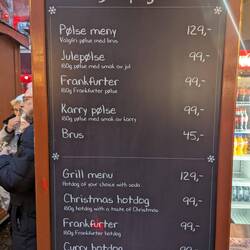 Pølse meny 129,-
Valgfri pølse med brus
Julepølse 99,-
180g pølse med smak av jul
Frankfurter 99,-
180g Frankfurter pølse
Karry pølse 99,-
180g pølse med smak av karry
Brus 45,-
Grill menu 129,-
Hotdog of your choice with soda
Christmas hotdog 99,-
180g hotdog with a taste of Christmas
Frankfurter 99,-
180g Frankfurter hotdog
Curry hotdog 99,-